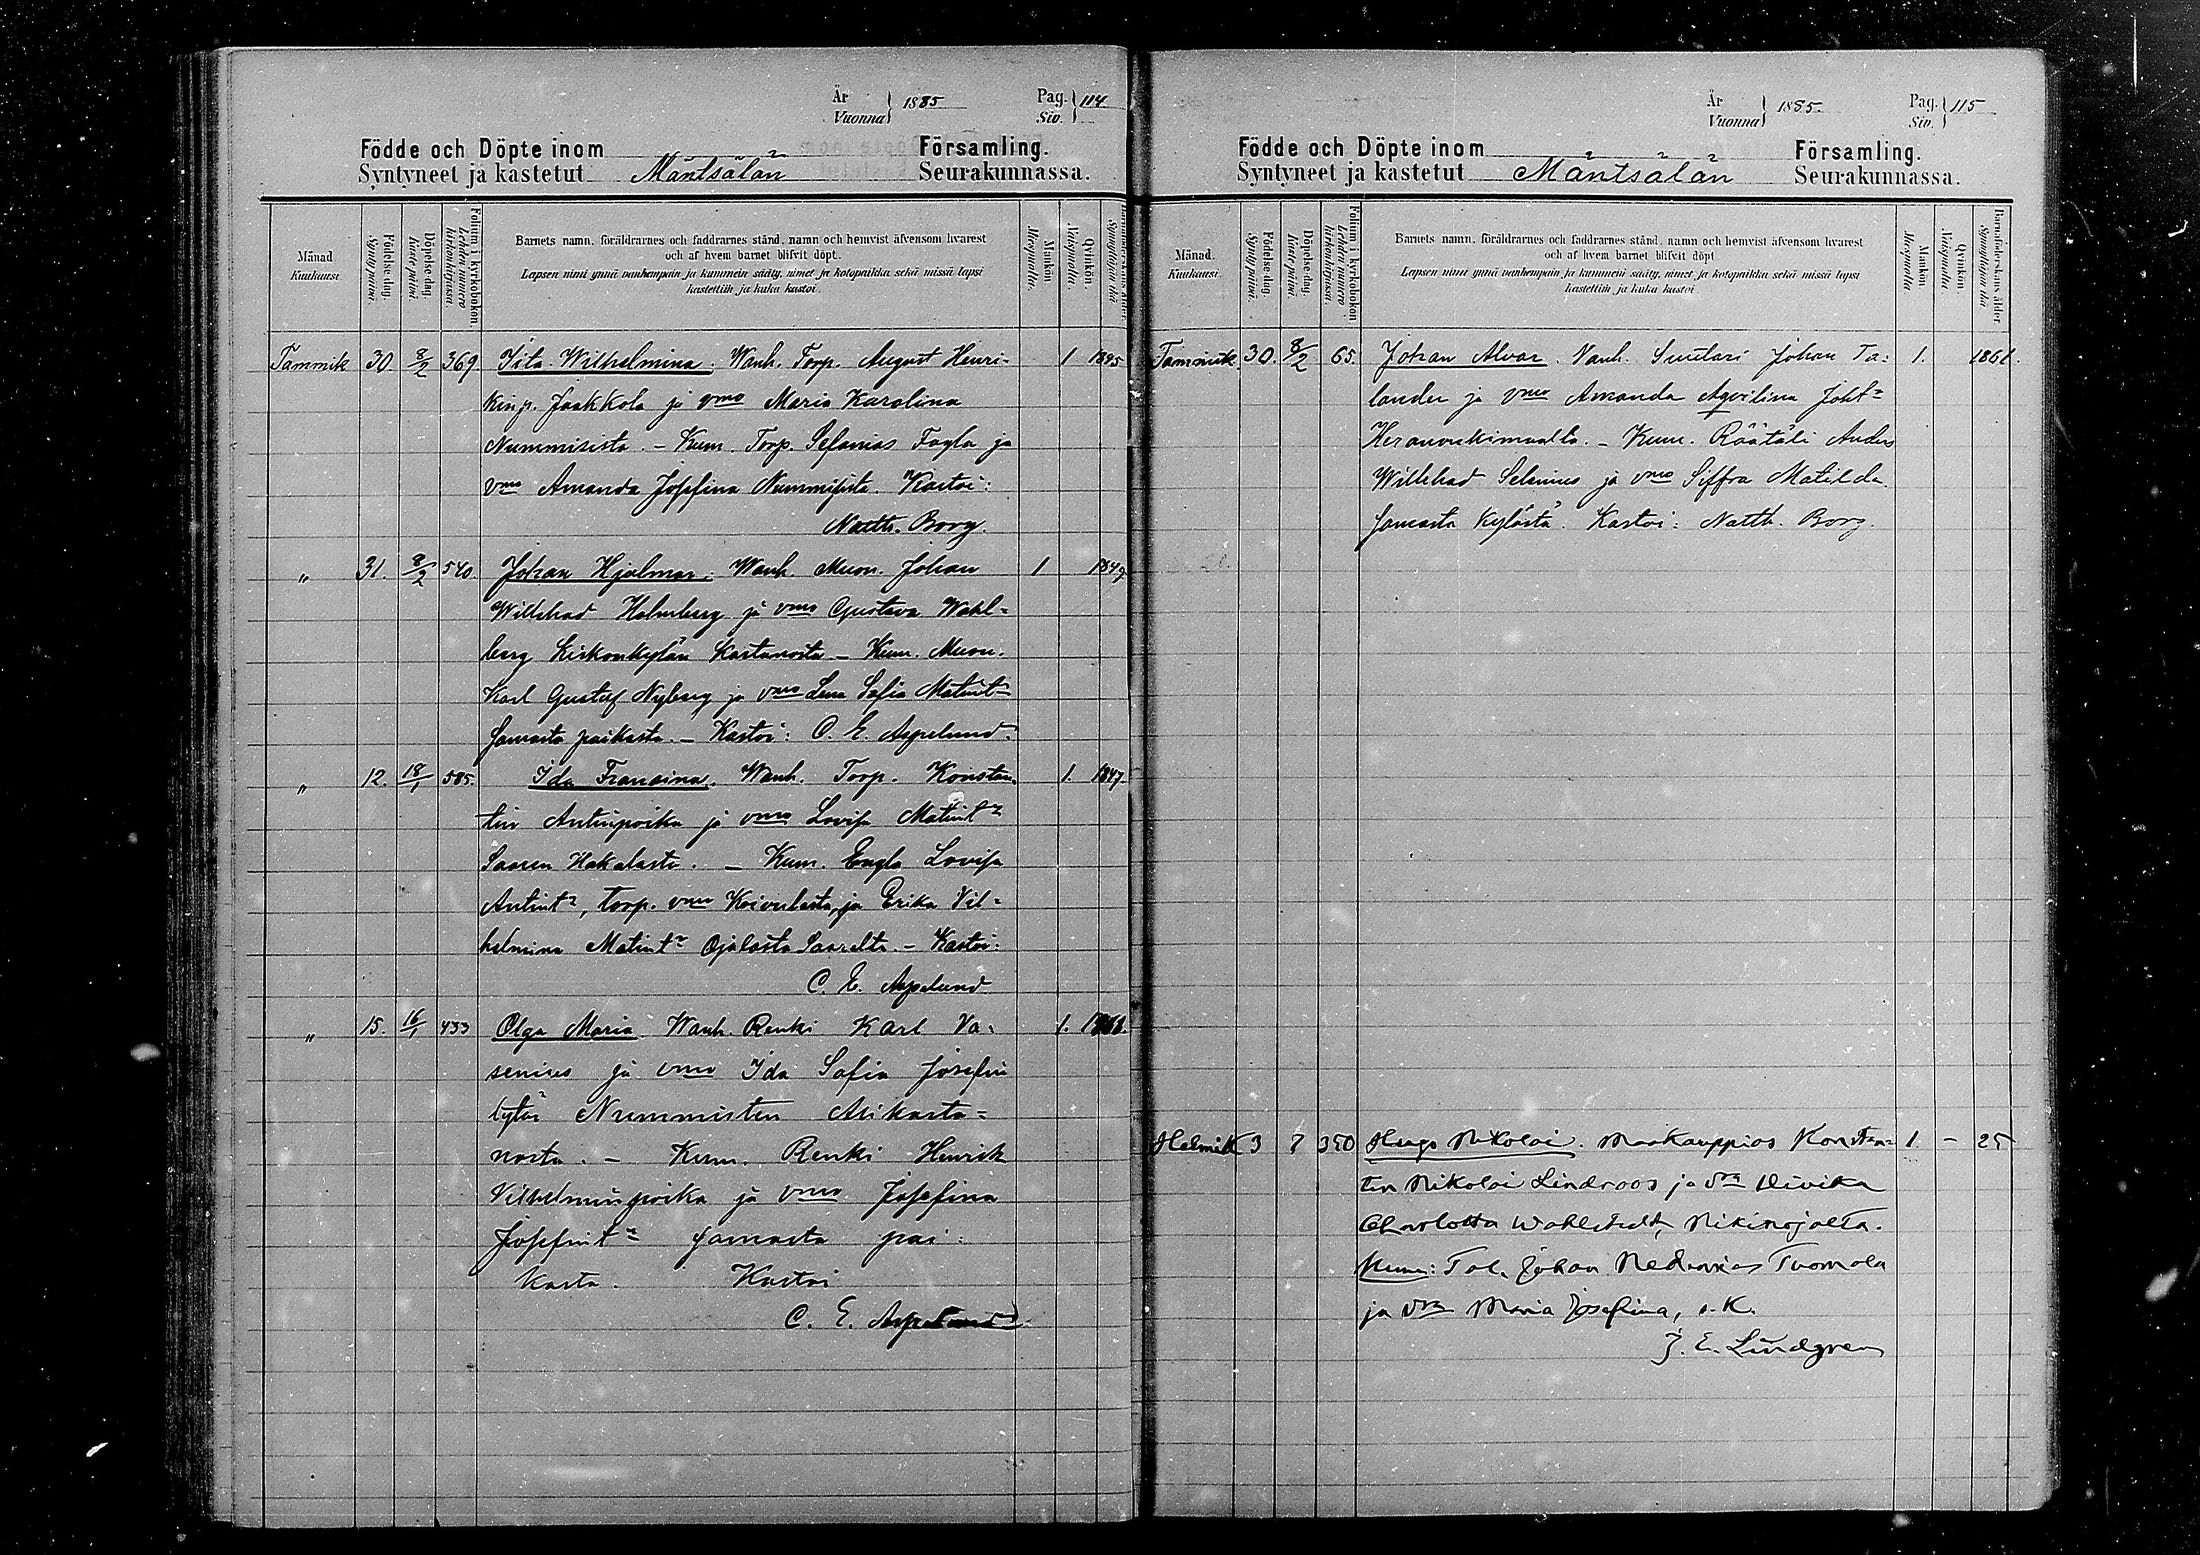 År
Vuonna } 1885
Pag.
Siv. } 114
Födde och Döpte inom
Syntyneet ja kastetut Mäntsälän
Församling.
Seurakunnassa.
Månad
Kuukausi
Födelse-dag.
Syntypäivä.
Döpelse-dag.
Kastepäivä.
Folium i kyrkoboken.
Lehden numero kirkonkirjassa.
Barnets namn, föräldrarnes och faddrarnes stånd, namn och hemvist äfvensom hvarest
och af hvem barnet blifvit döpt.
Lapsen nimi ynnä vanhempain ja kummein sääty, nimet ja kotopaikka sekä missä lapsi
kastettiin ja kuka kastoi.
Mankön
Miespuolta.
Qvinkön.
Naispuolta.
Tammik 30. 8/2 369. Iita Wilhelmina. Wanh. Torp. August Henri- 1
kinp. Jaakkola ja vmo Maria Karolina
Nummisista. – Kum. Torp. Sefanias Fagla ja
vmo Amanda Josefina Nummisista. Kastoi:
Natth. Borg.
" 31. 8/2 540 Johan Hjalmar: Wanh. Muon. Johan 1 1849
Willehad Holmberg ja vmo Gustava Wahl-
berg Kirkonkylän Kartanosta – Kum. Muon.
Karl Gustaf Nyberg ja vmo Lena Sofia Matint.
samasta paikasta. – Kastoi: C. E. Aspelund.
" 12. 18/1 585. Ida Fransina. Wanh. Torp. Konstan- 1. 1847.
tin Antinpoika ja vmo Lovisa Matint.
Saaren Hakalasta. – Kum. Engla Lovisa
Antint., torp. vmo Koivulasta, ja Erika Vil-
helmina Matint. Ojalasta Saarelta. – Kastoi:
C. E. Aspelund
" 15. 16/1 433 Olga Maria Wanh. Renki Karl Va- 1.
senius ja vmo Ida Sofia Josefin
tytär Nummisten Alikarta-
nosta. – Kum. Renki Henrik
Vilhelminpoika ja vmo Josefina
Josefint. samasta pai-
kasta. Kastoi
C. E. Aspelund
År
Vuonna } 1885.
Pag.
Siv. } 115
Födde och Döpte inom
Syntyneet ja kastetut Mäntsälän
Församling.
Seurakunnassa.
Månad.
Kuukausi
Födelse-dag.
Syntypäivä.
Döpelse-dag.
Kastepäivä.
Folium i kyrkoboken.
Lehden numero kirkonkirjassa.
Barnets namn, föräldrarnes och faddrarnes stånd, namn och hemvist äfvensom hvarest
och af hvem barnet blifvit döpt
Lapsen nimi ynnä vanhempain ja kummein sääty, nimet ja kotopaikka sekä missä lapsi
kastettiin ja kuka kastoi.
Mankön
Miespuolta
Qvinkön.
Naispuolta.
Barnaföderskans ålder
Synnyttäjän ikä
Tammik 30. 8/2 65. Johan Alvar. Vanh. Suutari Johan Ta- 1. 1861.
lander ja vmo Amanda Aqvilina Joht.
– Kum. Räätäli Anders
Willehad Selenius ja vmo Siffra Matilda
samasta kylästä. Kastoi: Natth. Borg.
Helmik 3 ? 350 Hugo Nikolai. Maakauppias Konstan- 1. – 25
tin Nikolai Lindroos ja Vmo Ulrika
Charlotta Wahlstedt, Nikinojalta.
Kum: Tal. Johan Tuomola
ja Vmo Maria Josefina, s. K.
J. E. Lindgren